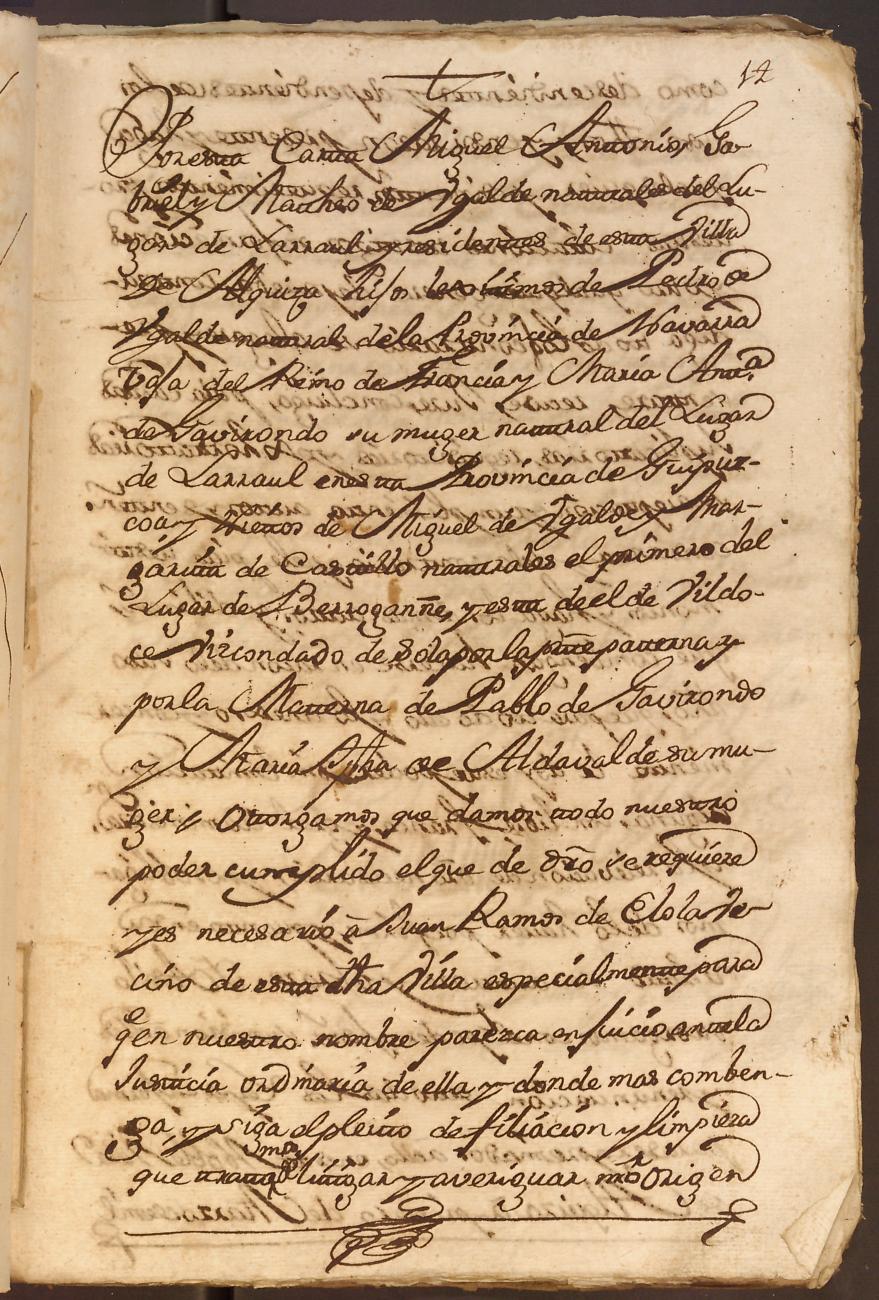 12
Por esta Carta Miguel Antonio, Ga-
briel y Matheo de Ygalde naturales del Lu-
gar de Larraul y residentes de esta Villa
de Alquiza hijos lexitimos de Pedro de
Ygalde natural de la Provincia de Navarra
Vaja del Reino de Francia y María Anta
de Gavirondo su muger natural del Lugar
de Larraul en esta Provincia de Guipuz-
coa, y Nietos de Miguel de Ygalde y Mar-
garita de Castillo naturales el primero del
Lugar de Berroganñe, y esta de el de Vildo-
ce Vizcondado de Sola por la pte paterna y
por la Materna de Pablo de Gavirondo
y María de Aldavalde su mu-
ger; Otorgamos que damos todo nuestro
poder cumplido el que de dro se requiere
y es necesario â Juan Ramos de Elola Ve-
cino de esta dha Villa especialmente para
qe en nuestro nombre parezca en juicio ante la
Justicia ordinaria de ella y donde mas comben-
ga, y siga el pleito de filiación y limpieza
que tratamos litigar y averiguar nro origen